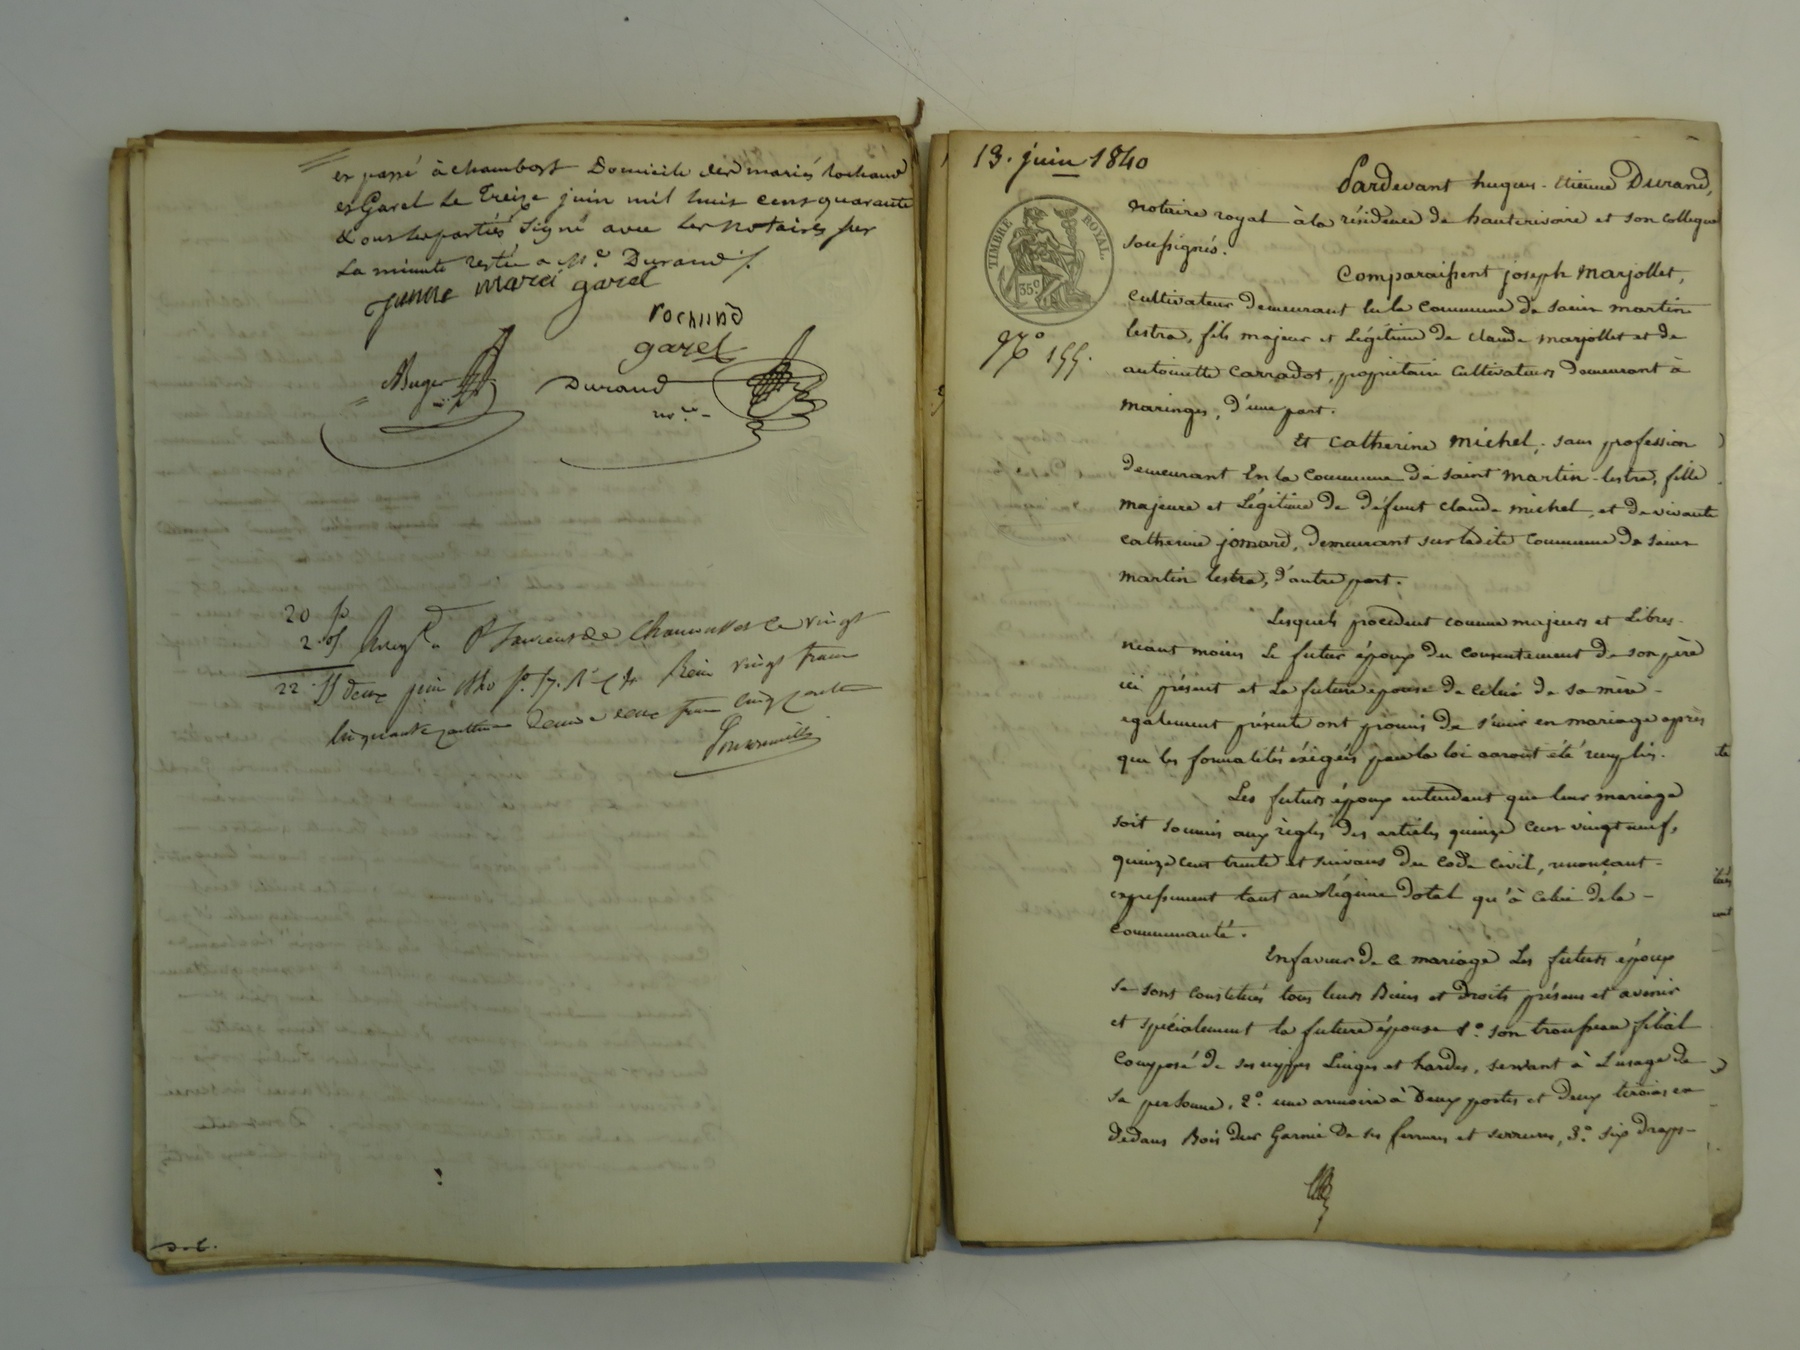 et passé à chambost Domicile des mariés Rochand
et Garel Le Treize juin mil huit cent quarante
& ont les parties Signé avec les Notaires sur
La minute restée a Me. Durand /.
jeanne marci garel
rochand
garel
Buger
Durand
nre
20 fr
2. 05 Enreg. a St Laurent de Chamousset le vingt
22. 55 deux juin 1840 fo. 57. Reçu vingt francs
Cinquante centimes Decime deux francs cinq centimes
D.C.
13. juin 1840
TIMBRE ROYAL.
35c
No 155.
Pardevant hugues-Etienne Durand,
Notaire royal à la résidence de hauterivoire et son collegue
soussignés.
Comparaissent joseph Marjollet,
Cultivateur demeurant en la Commune de Saint Martin
lestra, fils majeur et Légitime de claude marjollet et de
antoinette Carradot, propriétaire Cultivateurs demeurant à
Maringes, d'une part.
Et Catherine Michel, sans profession
demeurant En la Commune de Saint Martin-lestra, fille
majeure et Légitime de défunt claude michel, et de vivante
catherine jomard, demeurant sur ladite Commune de Saint
Martin lestra, d'autre part.
Lesquels procedent comme majeurs et Libres-
néant moins Le futur époux du Consentement de son père
ici présent et La future épouse de celui de sa mère-
egalement présente ont promis de s'unir en mariage après
que les formalités éxigées par la loi auront été remplies.
Les futurs époux entendent que leur mariage
soit soumis aux règles des articles quinze cent vingt neuf,
quinze cent trente et suivans du code civil, renonçant-
expressement tant au Régime dotal qu'à celui de la-
Communauté.
En faveur de ce mariage Les futurs époux
se sont Constitués tous leurs Biens et Droits présens et avenir
et spécialement la future épouse 1o. son trousseau filial
Composé de ses nippes Linges et hardes, servant à L'usage de
sa personne, 2o. une armoire à Deux portes et deux tiroirs en
dedans Bois dur Garnie De ses ferrures et serrures, 3o. six draps-